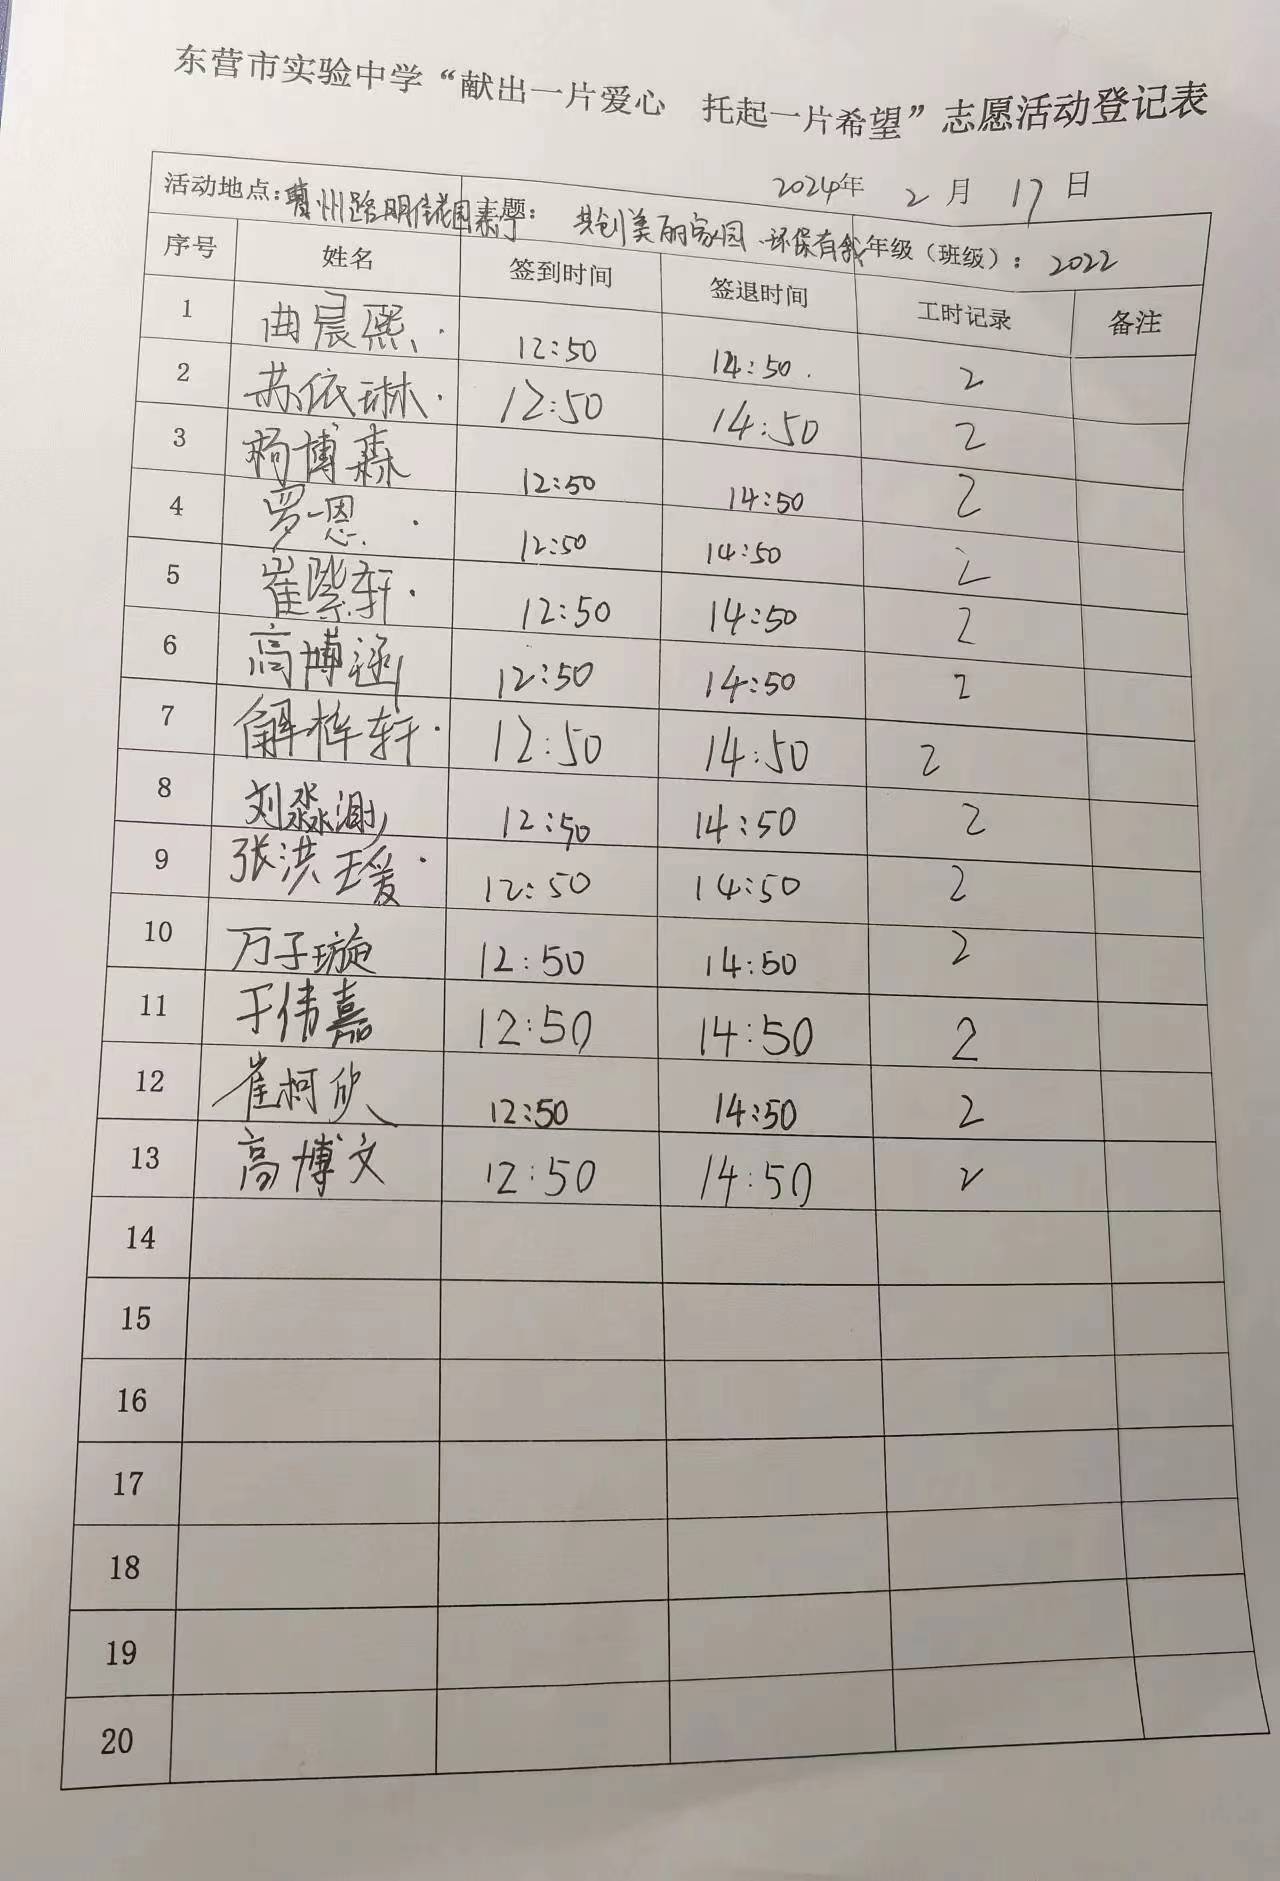 东营市实验中学“献出一片爱心 托起一片希望”志愿活动登记表
2024年 2月 17日
活动地点：州路明佳花园 主题：共创美丽家园 环保有我 年级（班级）：2022
序号 姓名 签到时间 签退时间 工时记录 备注
1 曲晨熙 12:50 14:50 2
2 苏依琳 12:50 14:50 2
3 杨博森 12:50 14:50 2
4 罗一恩 12:50 14:50 2
5 崔紫轩 12:50 14:50 2
6 高博涵 12:50 14:50 2
7 解梓轩 12:50 14:50 2
8 刘淼 12:50 14:50 2
9 张洪瑗 12:50 14:50 2
10 万子璇 12:50 14:50 2
11 于伟嘉 12:50 14:50 2
12 崔柯欣 12:50 14:50 2
13 高博文 12:50 14:50 2
14
15
16
17
18
19
20